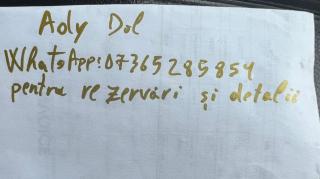 Ady Dol
WhatsApp:07365285854
pentru rezervări și detalii